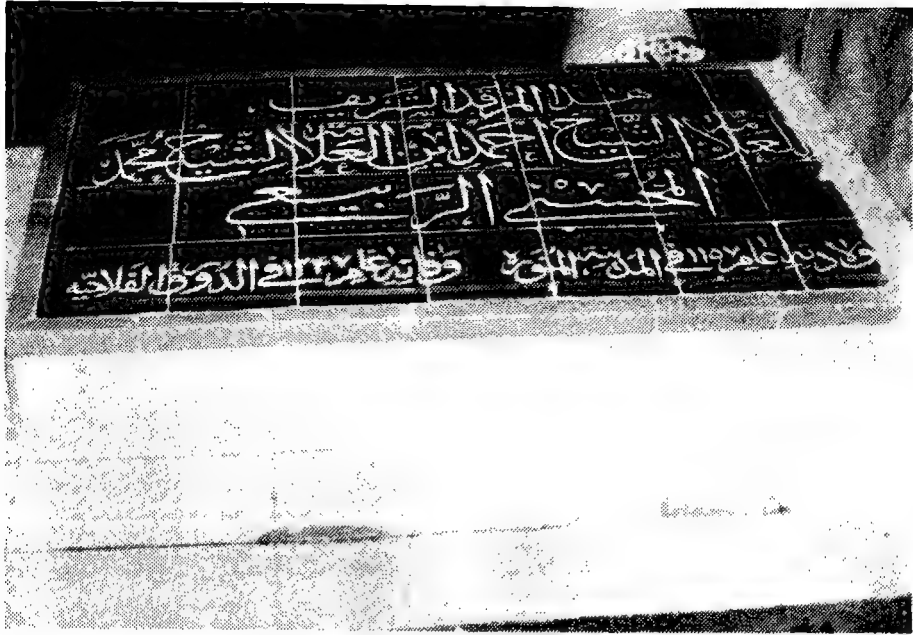 هذا المرقد الشريف
العلامة الشيخ احمد ابن العلامة الشيخ محمد
المحسني الربيعي
ولادته عام ١١٥٧ في المدينة المنورة وفاته عام ١٢٤٧ في الدورق الفلاحيه